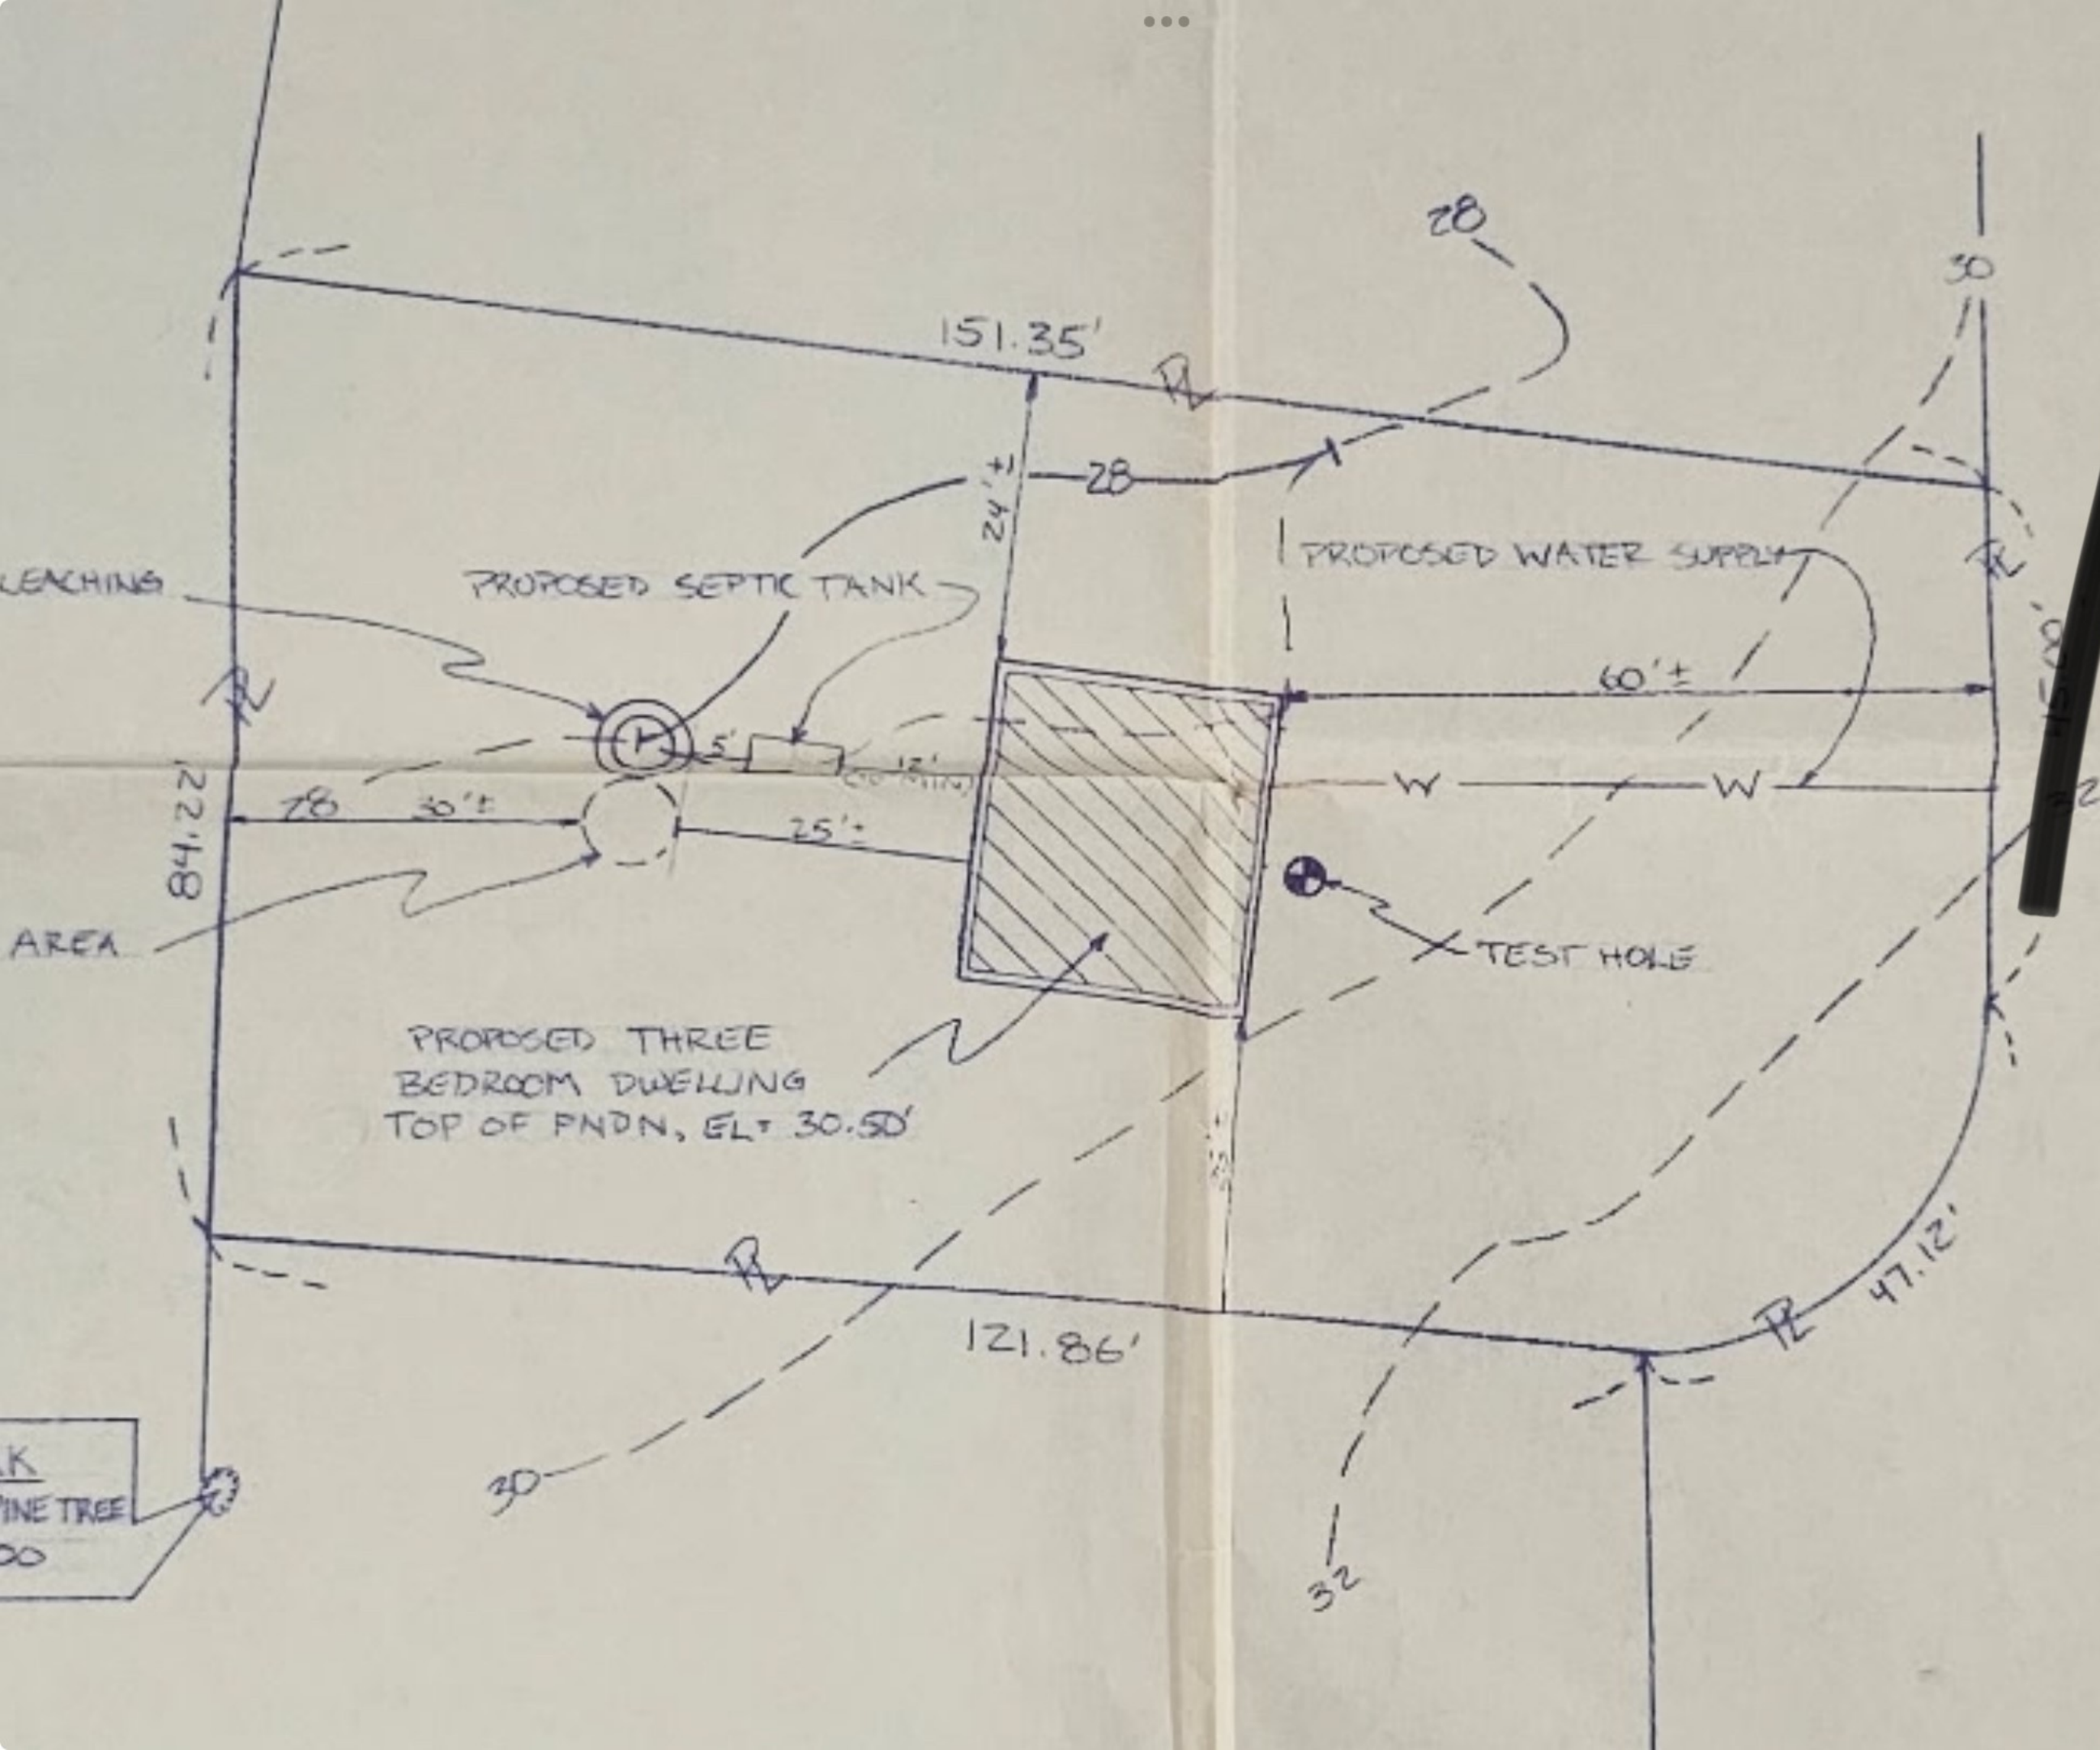 28
30
151.35'
PL
28
24'±
PROPOSED WATER SUPPLY
PL
LEACHING
PROPOSED SEPTIC TANK
60'±
PL
5'
12'
W
W
28
30'±
25'±
84.22'
AREA
TEST HOLE
PROPOSED THREE
BEDROOM DWELLING
TOP OF FNDN, EL= 30.50'
PL
121.86'
47.12'
PL
30
PINE TREE
32